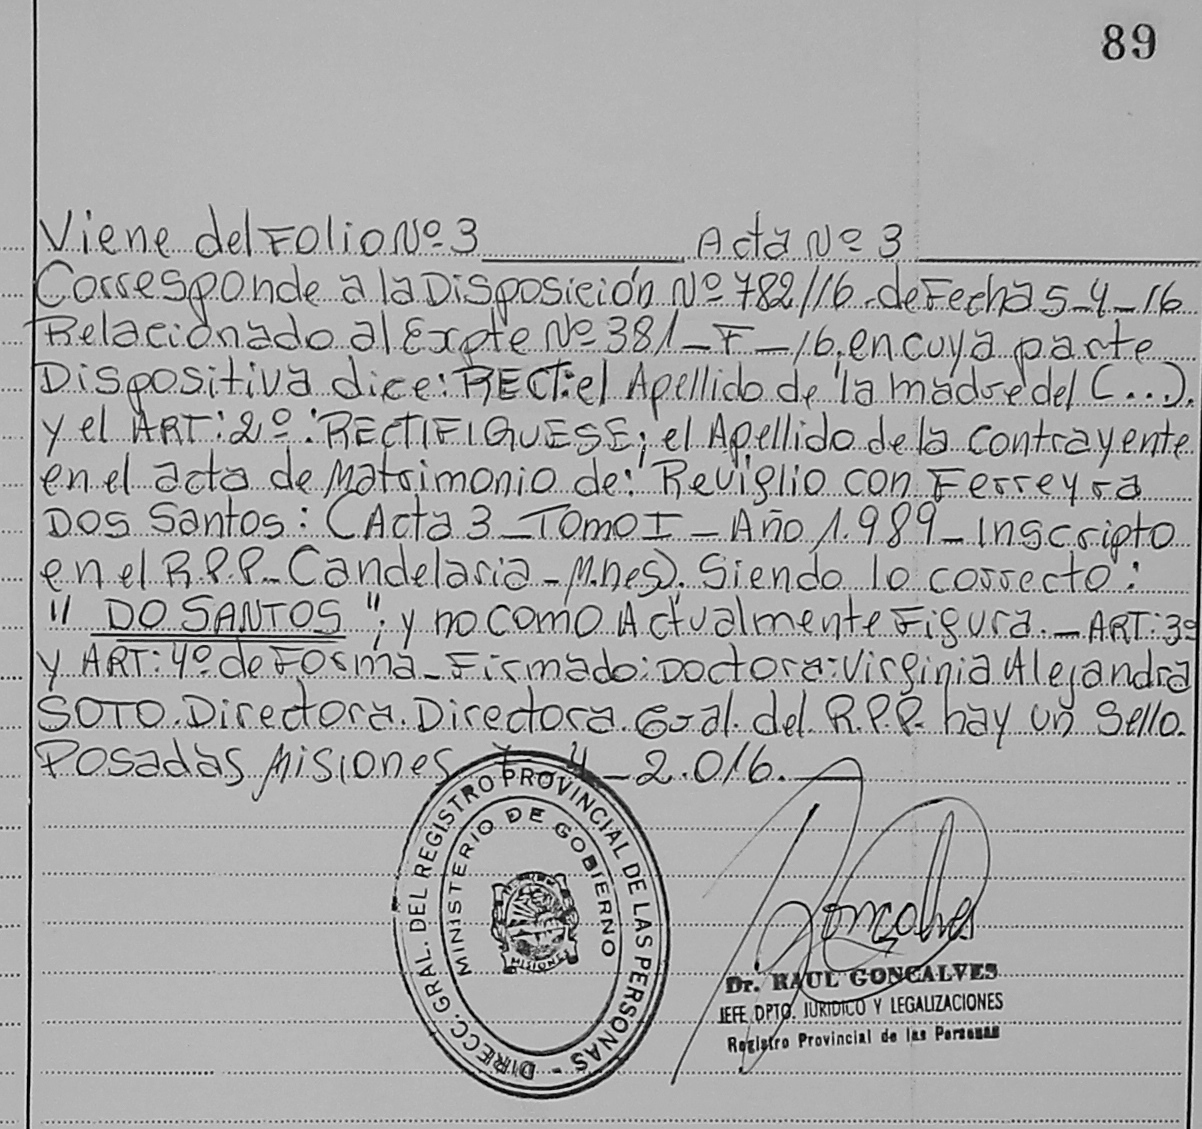 89
Viene del Folio Nº 3 Acta Nº 3
Corresponde a la Disposición Nº 782/16. de Fecha 5-4-16
Relacionado al Expte Nº 381-F-16, en cuya parte
Dispositiva dice: RECT: el Apellido de la madre del (...).
y el ART: 2º: RECTIFIQUESE; el Apellido de la contrayente
en el acta de Matrimonio de: Reviglio con Ferreyra
DOS Santos: (Acta 3 - Tomo I - Año 1.989 - Inscripto
en el R.P.P. Candelaria - M.nes). Siendo lo correcto:
"DO SANTOS"; y no como Actualmente Figura. - ART: 3º
y ART: 4º de Forma - Firmado: Doctora: Virginia Alejandra
SOTO. Directora. Directora. Gral. del R.P.P. hay un Sello.
Posadas Misiones 4-2.016.
DIRECC. GRAL. DEL REGISTRO PROVINCIAL DE LAS PERSONAS -
MINISTERIO DE GOBIERNO
MISIONES
Goncalves
Dr. RAUL GONCALVES
JEFE DPTO. JURIDICO Y LEGALIZACIONES
Registro Provincial de las Personas